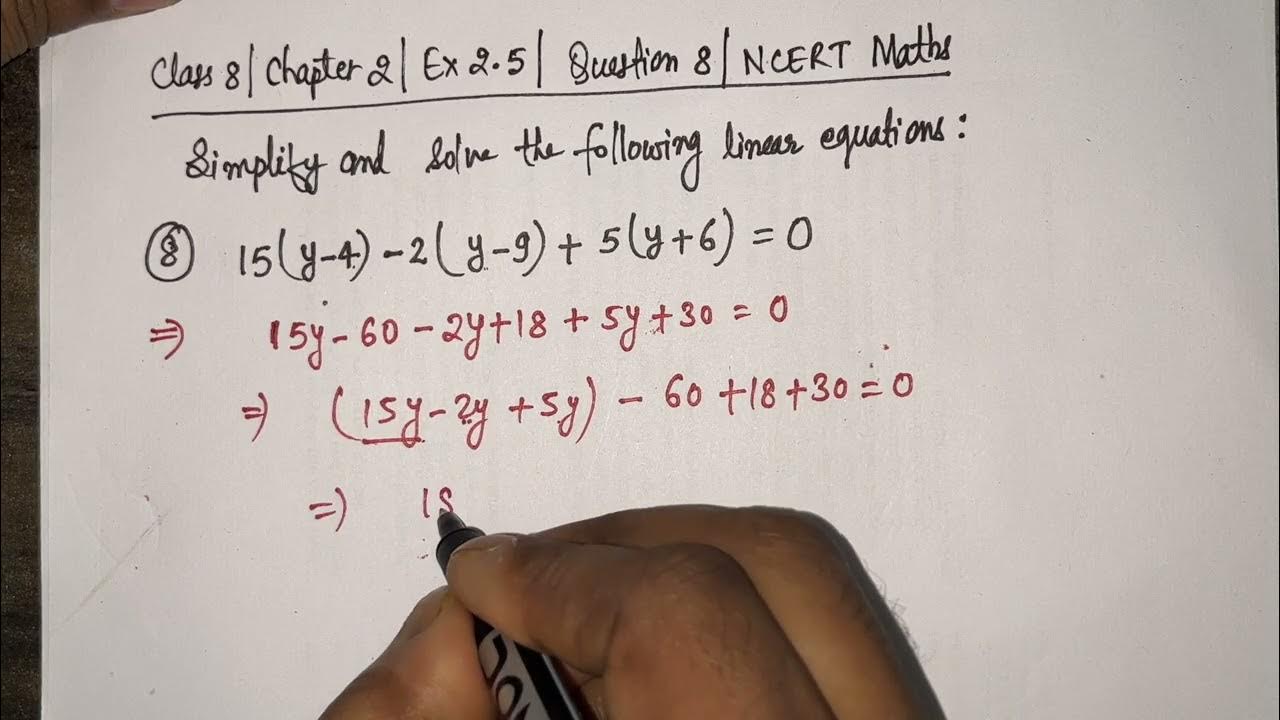 Class 8 | Chapter 2 | Ex 2.5 | Question 8 | NCERT Maths
Simplify and solve the following linear equations:
⑧ 15(y-4) - 2(y-9) + 5(y+6) = 0
⇒ 15y - 60 - 2y + 18 + 5y + 30 = 0
⇒ (15y - 2y + 5y) - 60 + 18 + 30 = 0
⇒ 18